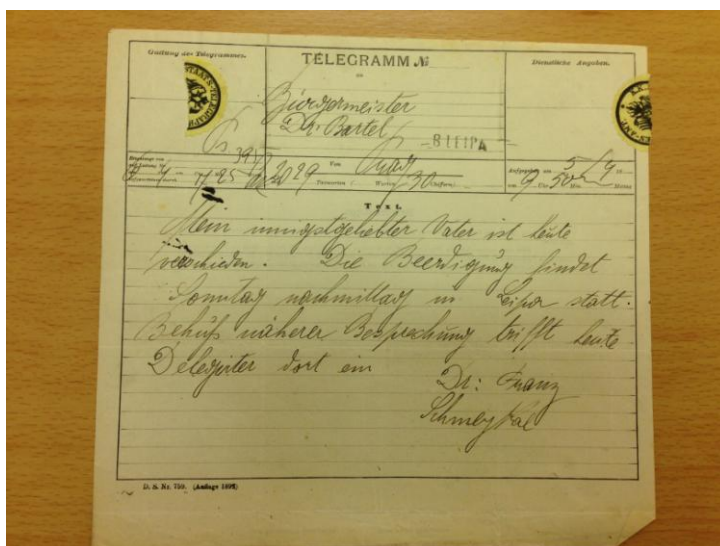 Gattung des Telegrammes.
TELEGRAMM №
an
Dienstliche Angaben.
Bürgermeister
Dr. Bartel
BILIPA
2029 Von Prag
Taxworten ( Worten 30 Chiffren)
Aufgegeben am 5/4
um 9 Uhr 50 Min.
Text.
Mein innigstgeliebter Vater ist heute
verschieden. Die Beerdigung findet
Sonntag nachmittag in Leipa statt.
Behufs näherer Besprechung trifft heute
Delegirter dort ein
Dr: Franz
Schmeykal
D. S. Nr. 750. (Auflage 1893)